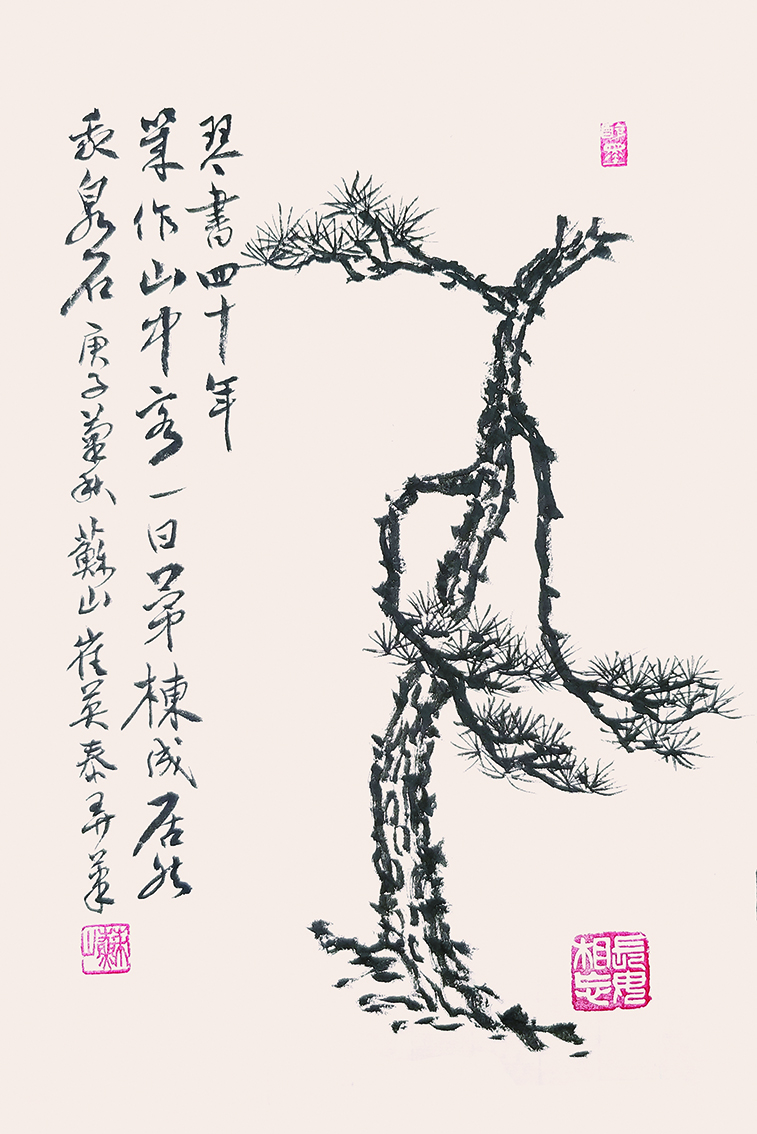 琴書四十年
幾作山中客一日茅棟成居然
我泉石庚子菊秋蘇山崔英泰弄筆
長毋相忘